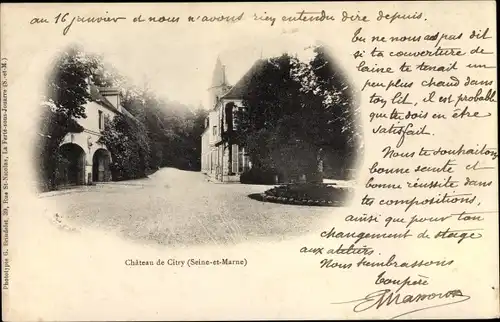 au 16 janvier et nous n'avons rien entendu dire depuis.
Tu ne nous as pas dit
si ta couverture de
laine te tenait un
peu plus chaud dans
ton lit, il est probable
que tu dois en être
satisfait.
Nous te souhaitons
bonne santé et
bonne réussite dans
tes compositions,
ainsi que pour ton
changement de stage
aux ateliers.
Nous t'embrassons
Ton père
Château de Citry (Seine-et-Marne)
Phototypie G. Brindelet, 39, Rue St-Nicolas, La Ferté-sous-Jouarre (S.-et-M.)